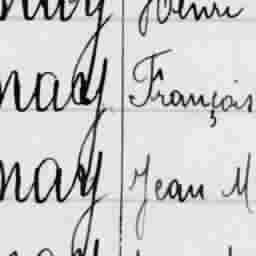 Henri
nay François
nay Jean M